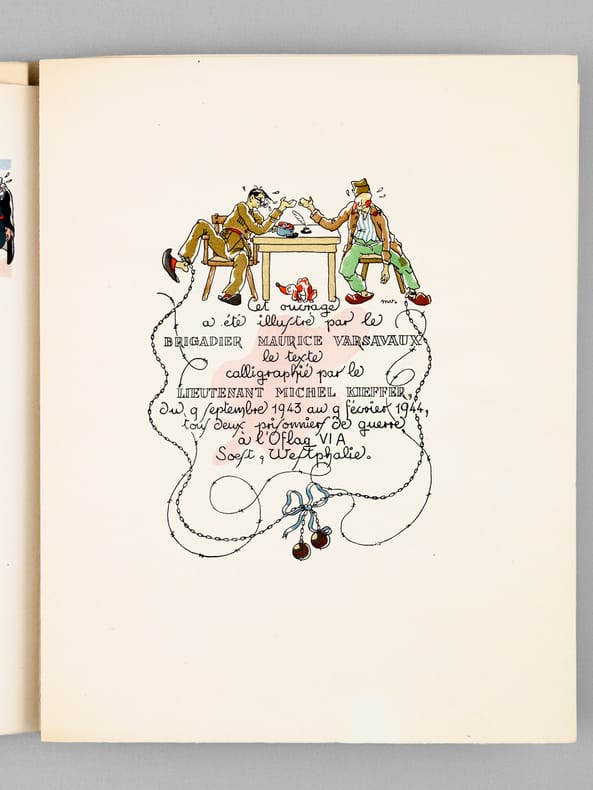 Cet ouvrage
a été illustré par le
BRIGADIER MAURICE VARSAVAUX
le texte
calligraphié par le
LIEUTENANT MICHEL KIEFFER,
du 9 septembre 1943 au 9 février 1944,
tous deux prisonniers de guerre
à l'Oflag VI A
Soest, Westphalie.